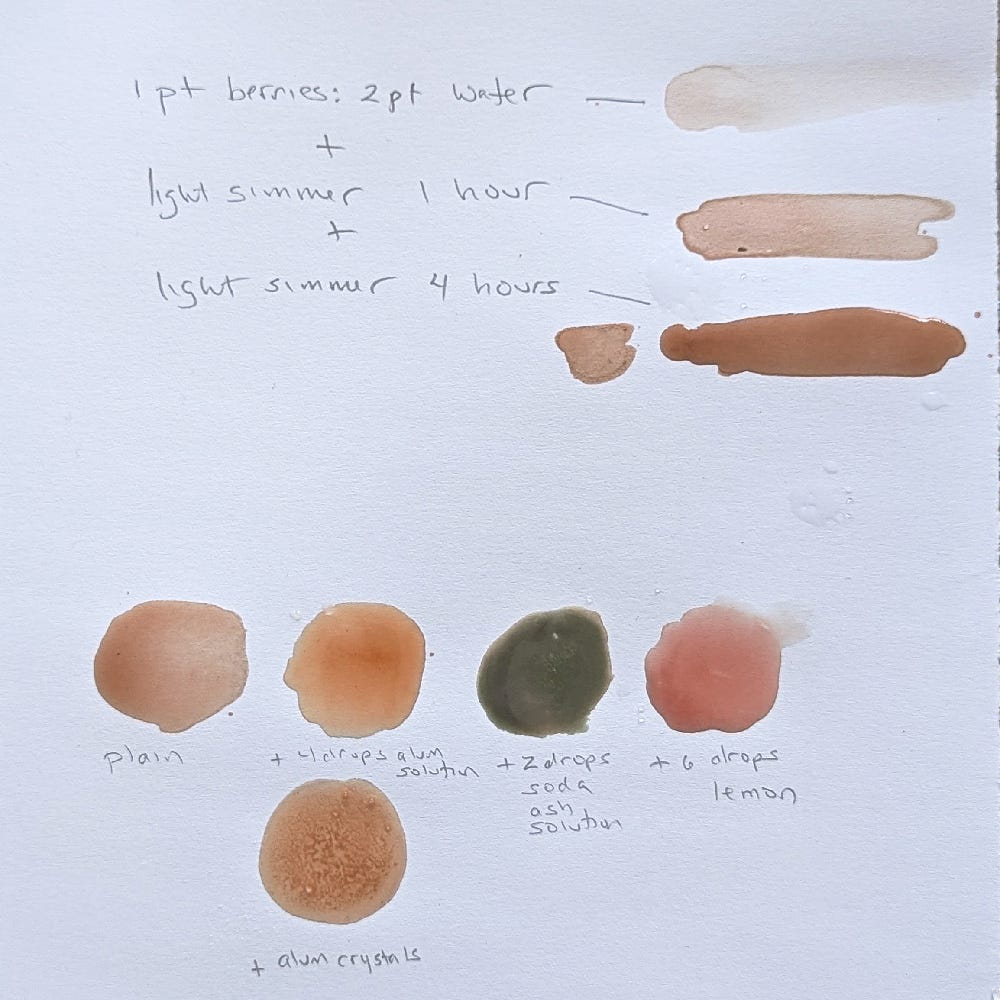 1 pt berries: 2 pt water
+
light simmer 1 hour
+
light simmer 4 hours
plain
+ 4 drops alum
solution
+ 2 drops
soda
ash
solution
+ 6 drops
lemon
+ alum crystals